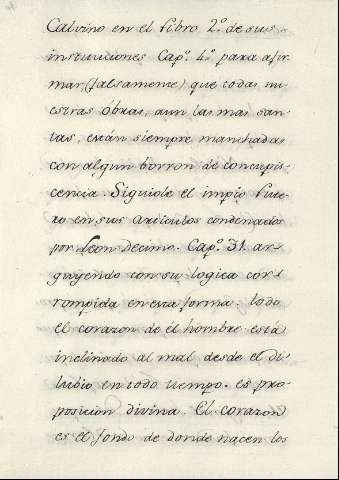 Calvino en el Libro 2.º de sus
instituciones Cap.º 4.º para afir
mar (falsamente) que todas nu
estras obras, aun las mas san-
tas, están siempre manchadas
con algun borron de concupis-
cencia. Siguiole el impio Lute-
ro en sus articulos condenados
por Leon decimo. Cap.º 31. ar-
guyendo con su logica cor-
rompida en esta forma. todo
el corazon de el hombre está
inclinado al mal, desde el di-
lubio en todo tiempo. es pro-
posicion divina. El corazon
es el fondo de donde nacen los